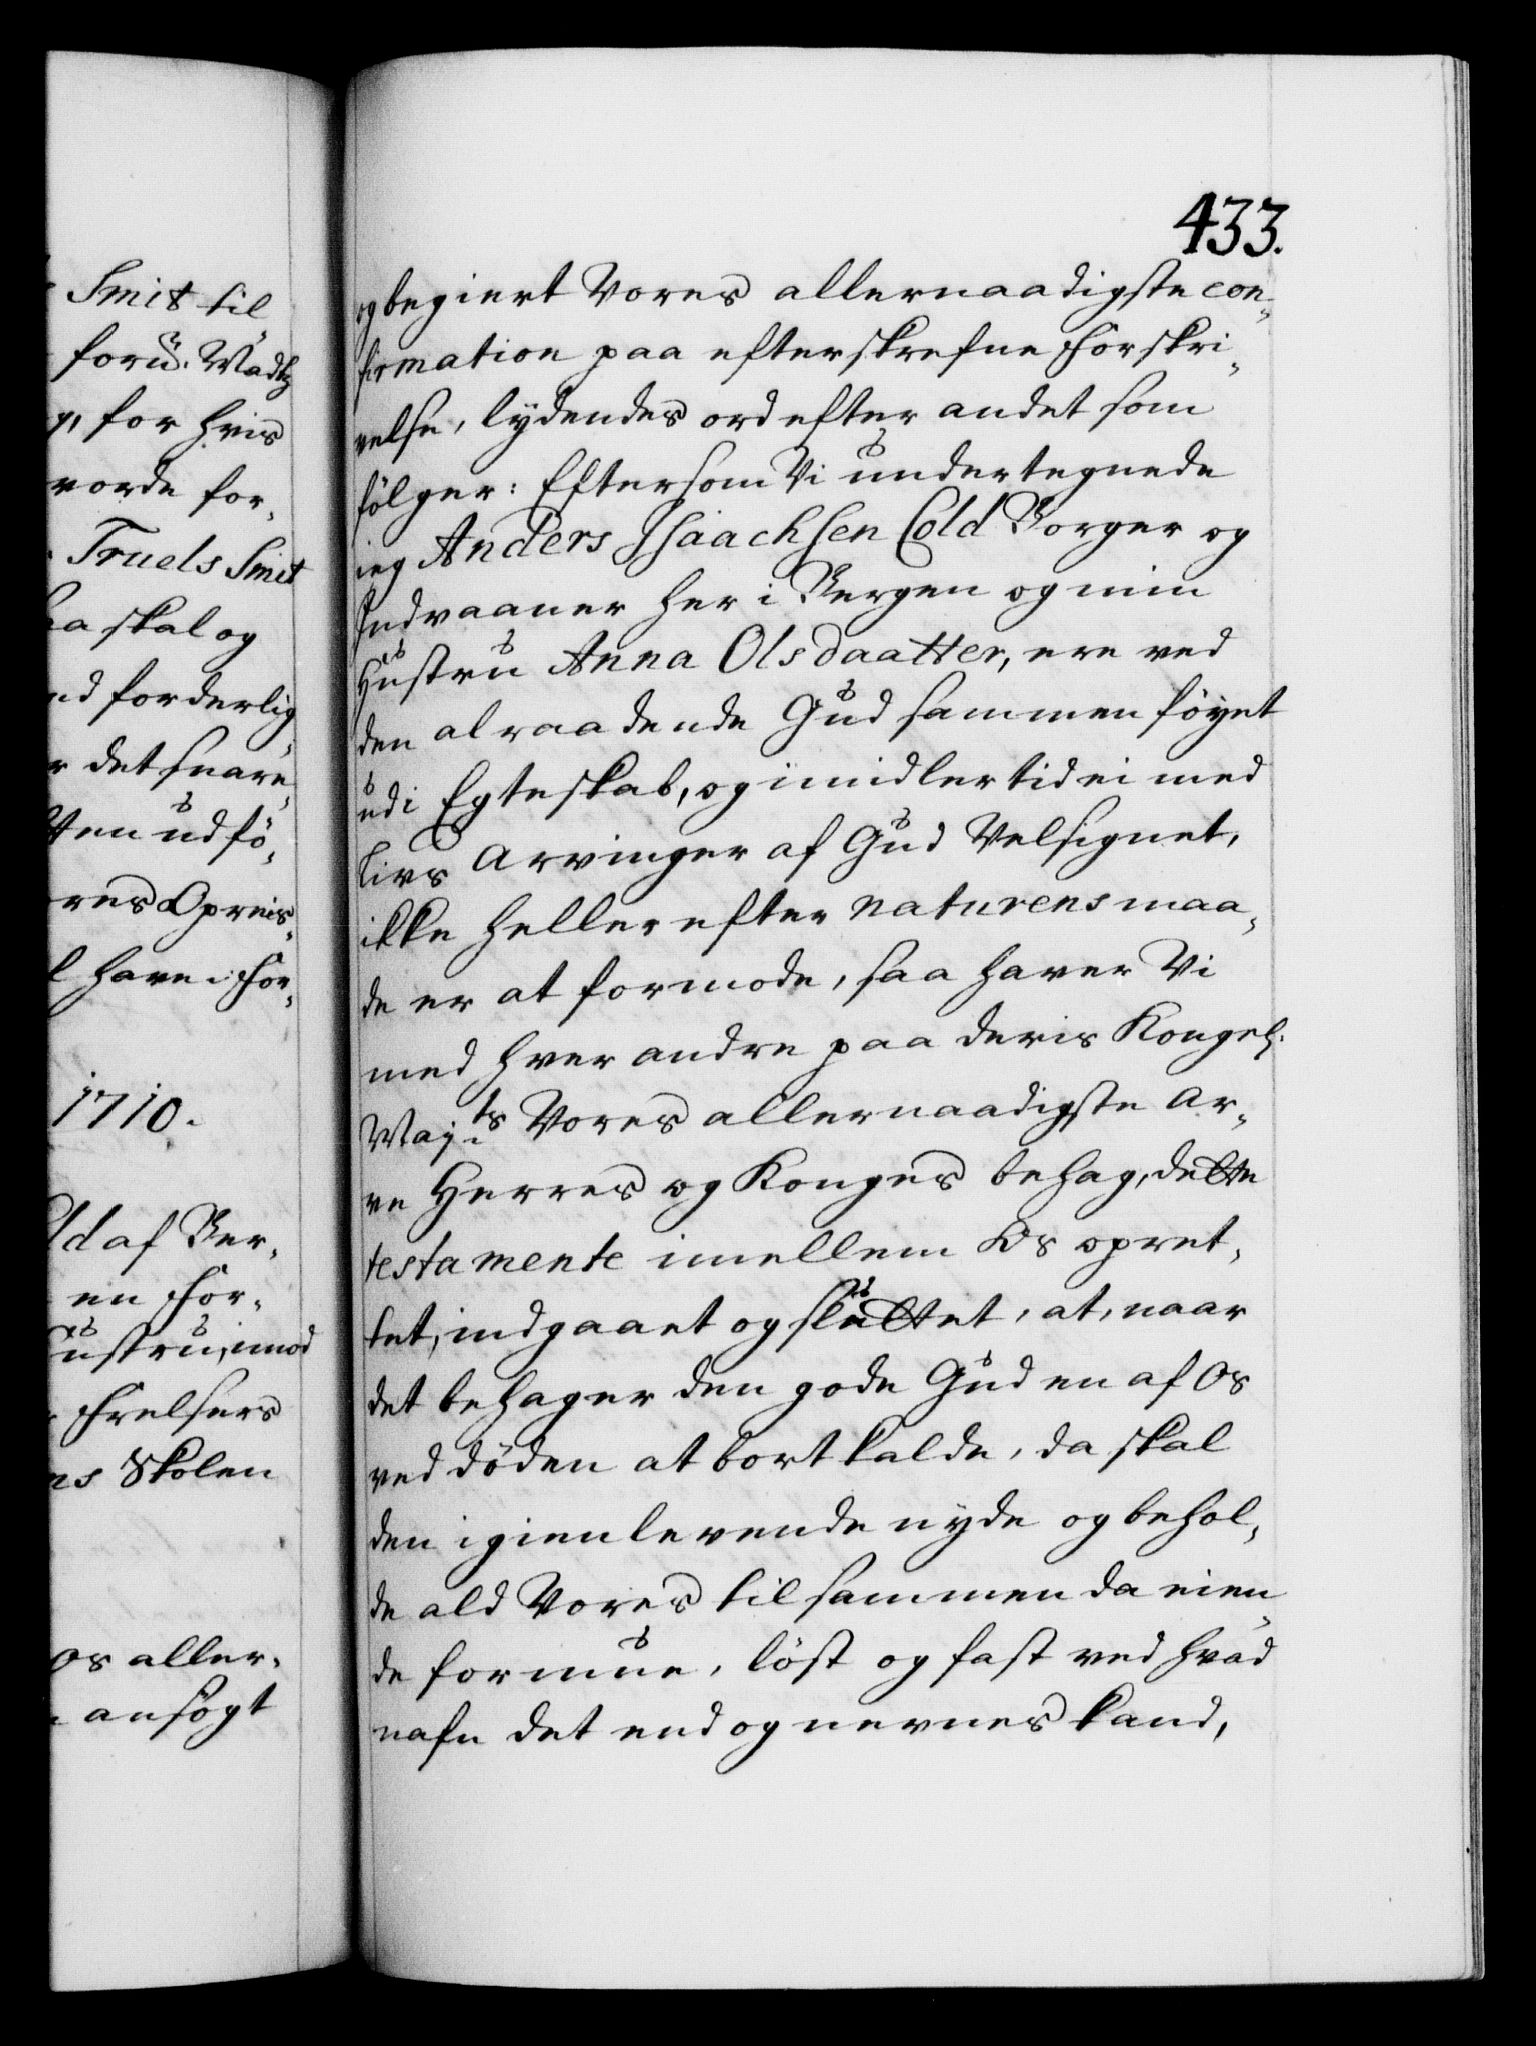 Smit til
for hvis
vorde for-
Truels Smit
skal og
forderlig
det snare-
udfö-
res Opreis-
have i for-
1710.
af Ber-
en for-
ustru, imod
frelsers
Skolen
os aller-
ansögt
433.
og begiert Vores allernaadigste con-
firmation paa efterskrefne forskri-
velse, lydendes ord efter andet som
fölger: Eftersom Vi undertegnede
ieg Anders Isaachsen Cold Borger og
Indvaaner her i Bergen og min
Hustru Anna Olsdaatter, ere ved
den alraadende Gud sammenföyet
udi Egteskab, og imidlertid ei med
Livs Arvinger af Gud Velsignet,
ikke heller efter naturens maa-
de er at formode, saa haver Vi
med hver andre paa deris Kongel.
Maj.ts Vores allernaadigste Ar-
ve Herres og Konges behag, dette
testamente imellem Os opret-
tet, indgaaet og sluttet, at, naar
det behager den gode Gud en af Os
ved döden at bortkalde, da skal
den igienlevende nyde og behol-
de ald Vores tilsammen da eien-
de formue, löst og fast ved hvad
nafn det end og nevnes kand,